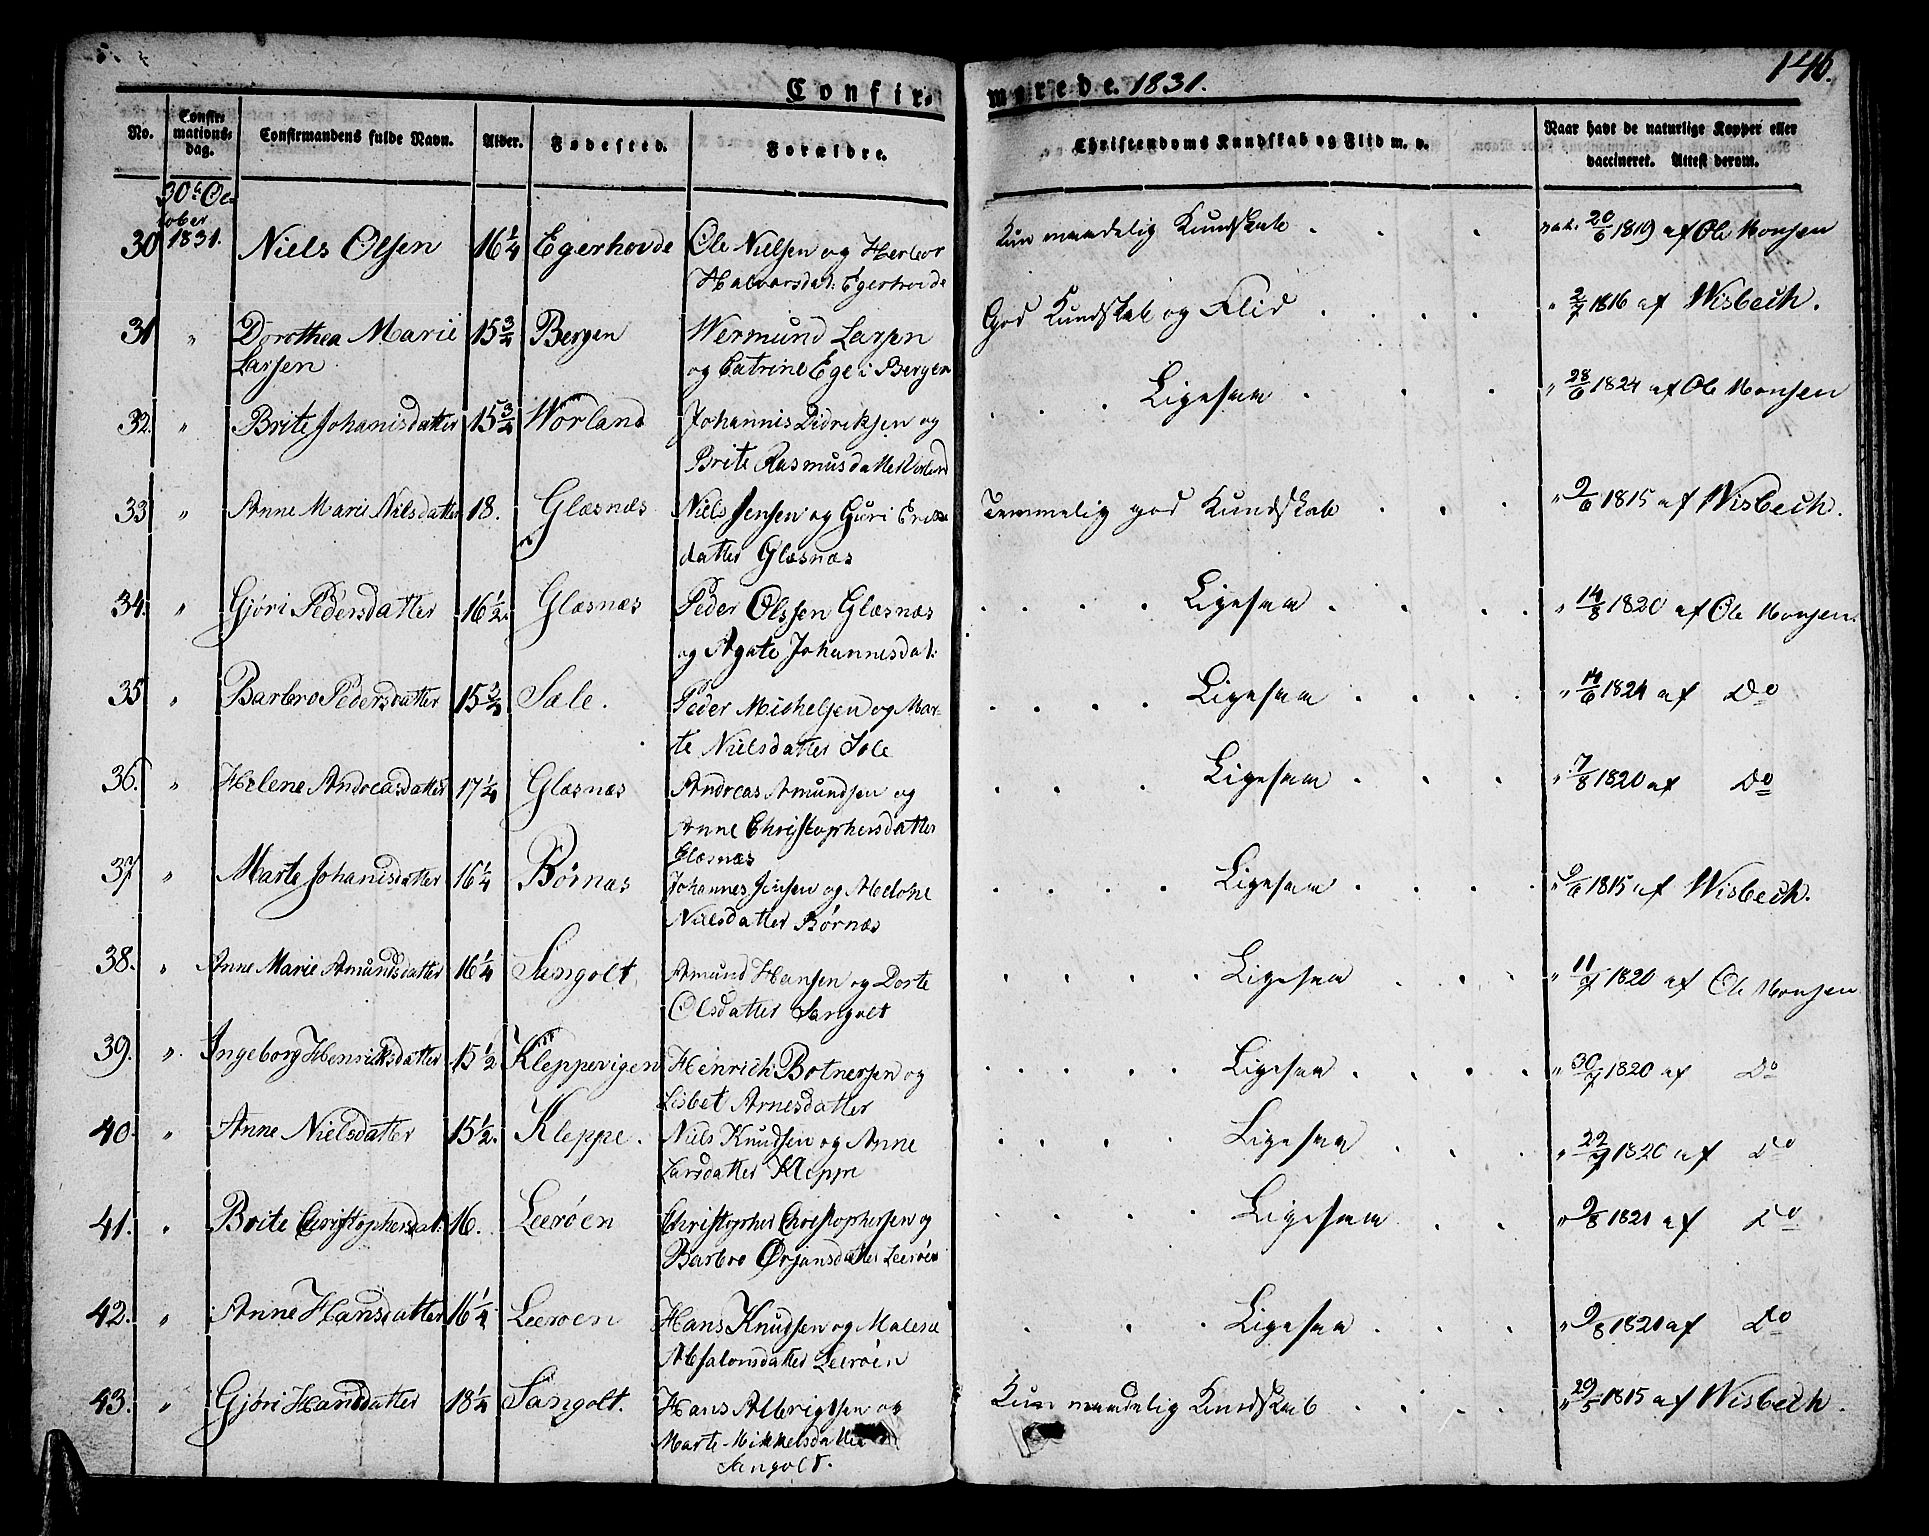 146.
Confir-
merede. 1831.
No.
Confir-
mations-
dag.
Confirmandens fulde Navn.
Alder.
Fødested.
Forældre.
Christendoms Kundskab og Flid m. v.
Naar havt de naturlige Kopper eller
vaccineret. Attest derom.
30te Oc-
tober
30 1831. Niels Olsen 16 1/4 Egerhovde Ole Nielsen og Herbor
Halvorsdat: Egerhovde
Kun maadelig Kundskab . . . vak. 20/6 1819 af Ole Monsen
31 " Dorothea Marie 15 3/4 Bergen Wermund Larsen
Larsen og Catrine Ege i Bergen
God Kundskab og Flid . . . . " 2/7 1816 af Wisbech.
32. " Brite Johanisdatter 15 3/4 Worland Johannis Didriksen og
Brite Rasmusdatter Vorland
. . . Ligesaa . . . " 28/6 1824 af Ole Monsen
33 " Anne Marie Nilsdatter 18. Glæsnæs Niels Jensen og Guri Eriks
datter Glæsnæs
Temmelig god Kundskab . . . " 9/6 1815 af Wisbech.
34. " Gjøri Pedersdatter 16 1/2. Glæsnæs Peder Olssen Glæsnæs
og Agate Johannesdat:
. . . . Ligesaa . . . " 14/8 1820 af Ole Monsen.
35 " Barbro Pedersdatter 15 3/4 Sale. Peder Michelsen og Mar-
te Nielsdatter Sole
. . . . Ligesaa . . . . " 14/6 1824 af Do
36. " Helene Andreasdatter 17 1/4 Glæsnæs Andreas Amundsen og
Anne Christophersdatter
Glæsnæs
. . . Ligesaa . . . " 7/8 1820 af Do
37 " Marte Johanisdatter 16 1/4 Børnæs Johannes Jensen og
Nielsdatter Børnæs
. . . . Ligesaa . . . . " 9/6 1815 af Wisbech.
38. " Anne Marie Amundsdatter 16 1/4 Sangolt Amund Hansen og Dorte
Olsdatter Sangolt
. . . . Ligesaa . . . " 11/7 1820 af Ole Monsen
39. " Ingeborg Henriksdatter 15 1/2 Kleppevigen Heinrich Botnersen og
Lisbet Arnesdatter
. . . . . Ligesaa . . . . " 30/7 1820 af Do
40. " Anne Nielsdatter 15 1/2. Kleppe. Niels Knudsen og Anne
Larsdatter Kleppe
. . . . Ligesaa . . . " 22/7 1820 af Do
41. " Brite Christophersdat: 16. Leerøen Christopher Christophersen og
Barbro Ørjansdatter Leerøen
. . . . Ligesaa . . " 9/8 1821 af Do
42. " Anne Hansdatter 16 1/4 Leerøen Hans Knudsen og Malene
Absalonsdatter Leerøen
. . . Ligesaa . . . " 9/8 1821 af Do
43. " Gjøri Hansdatter 18 1/4 Sangolt. Hans Albrigtsen og
Marte Mikkelsdatter
Sangolt.
Kun maadelig Kundskab . . . . " 29/5 1815 af Wisbech.